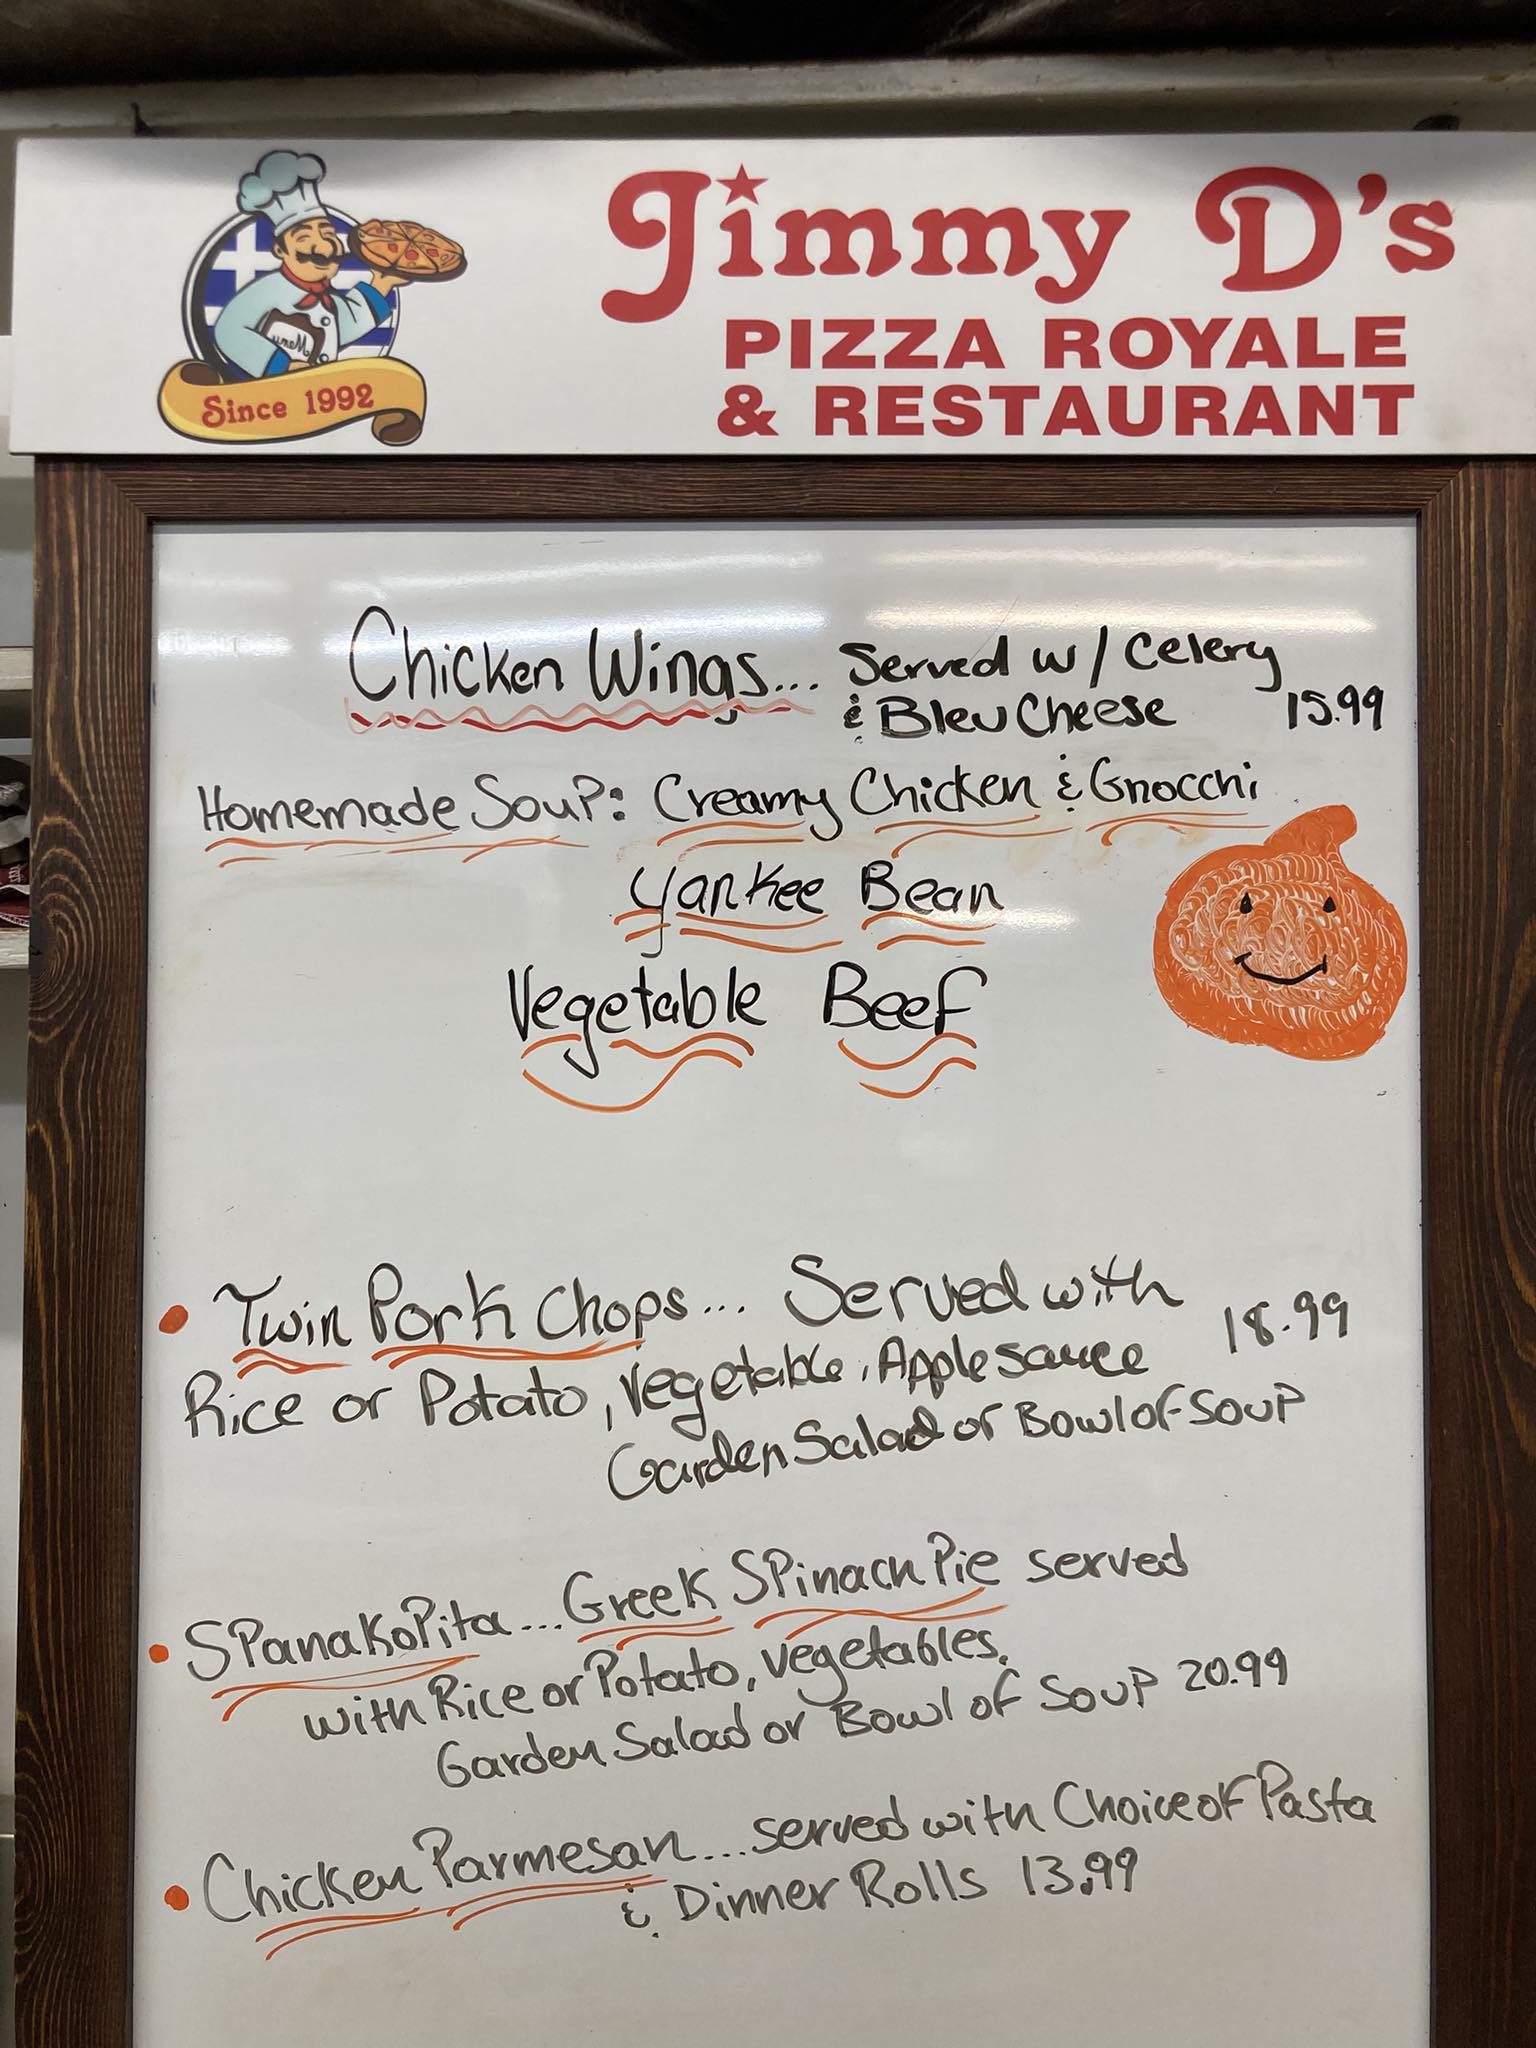 Jimmy D's
PIZZA ROYALE
& RESTAURANT
Menu
Since 1992
Chicken Wings... Served w/ Celery
& Bleu Cheese 15.99
Homemade Soup: Creamy Chicken & Gnocchi
Yankee Bean
Vegetable Beef
• Twin Pork Chops... Served with
Rice or Potato, Vegetable, Applesauce 18.99
Garden Salad or Bowl of Soup
• Spanakopita... Greek Spinach Pie served
with Rice or Potato, vegetables,
Garden Salad or Bowl of Soup 20.99
• Chicken Parmesan... served with Choice of Pasta
& Dinner Rolls 13.99